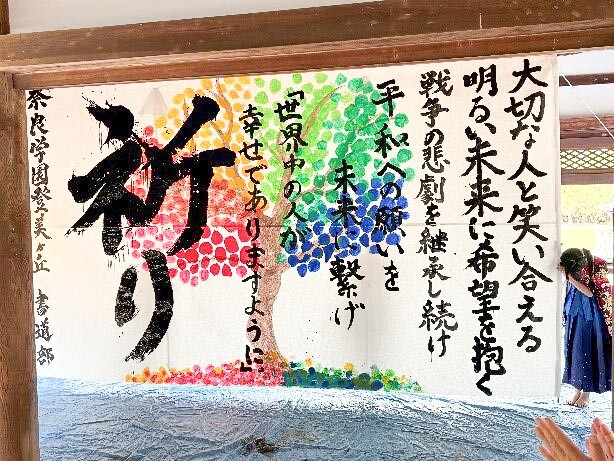 大切な人と笑い合える
明るい未来に希望を抱く
戦争の悲劇を継承し続け
平和への願いを
未来へ繋げ
「世界中の人が
幸せでありますように」
祈り
奈良学園登美ヶ丘 書道部